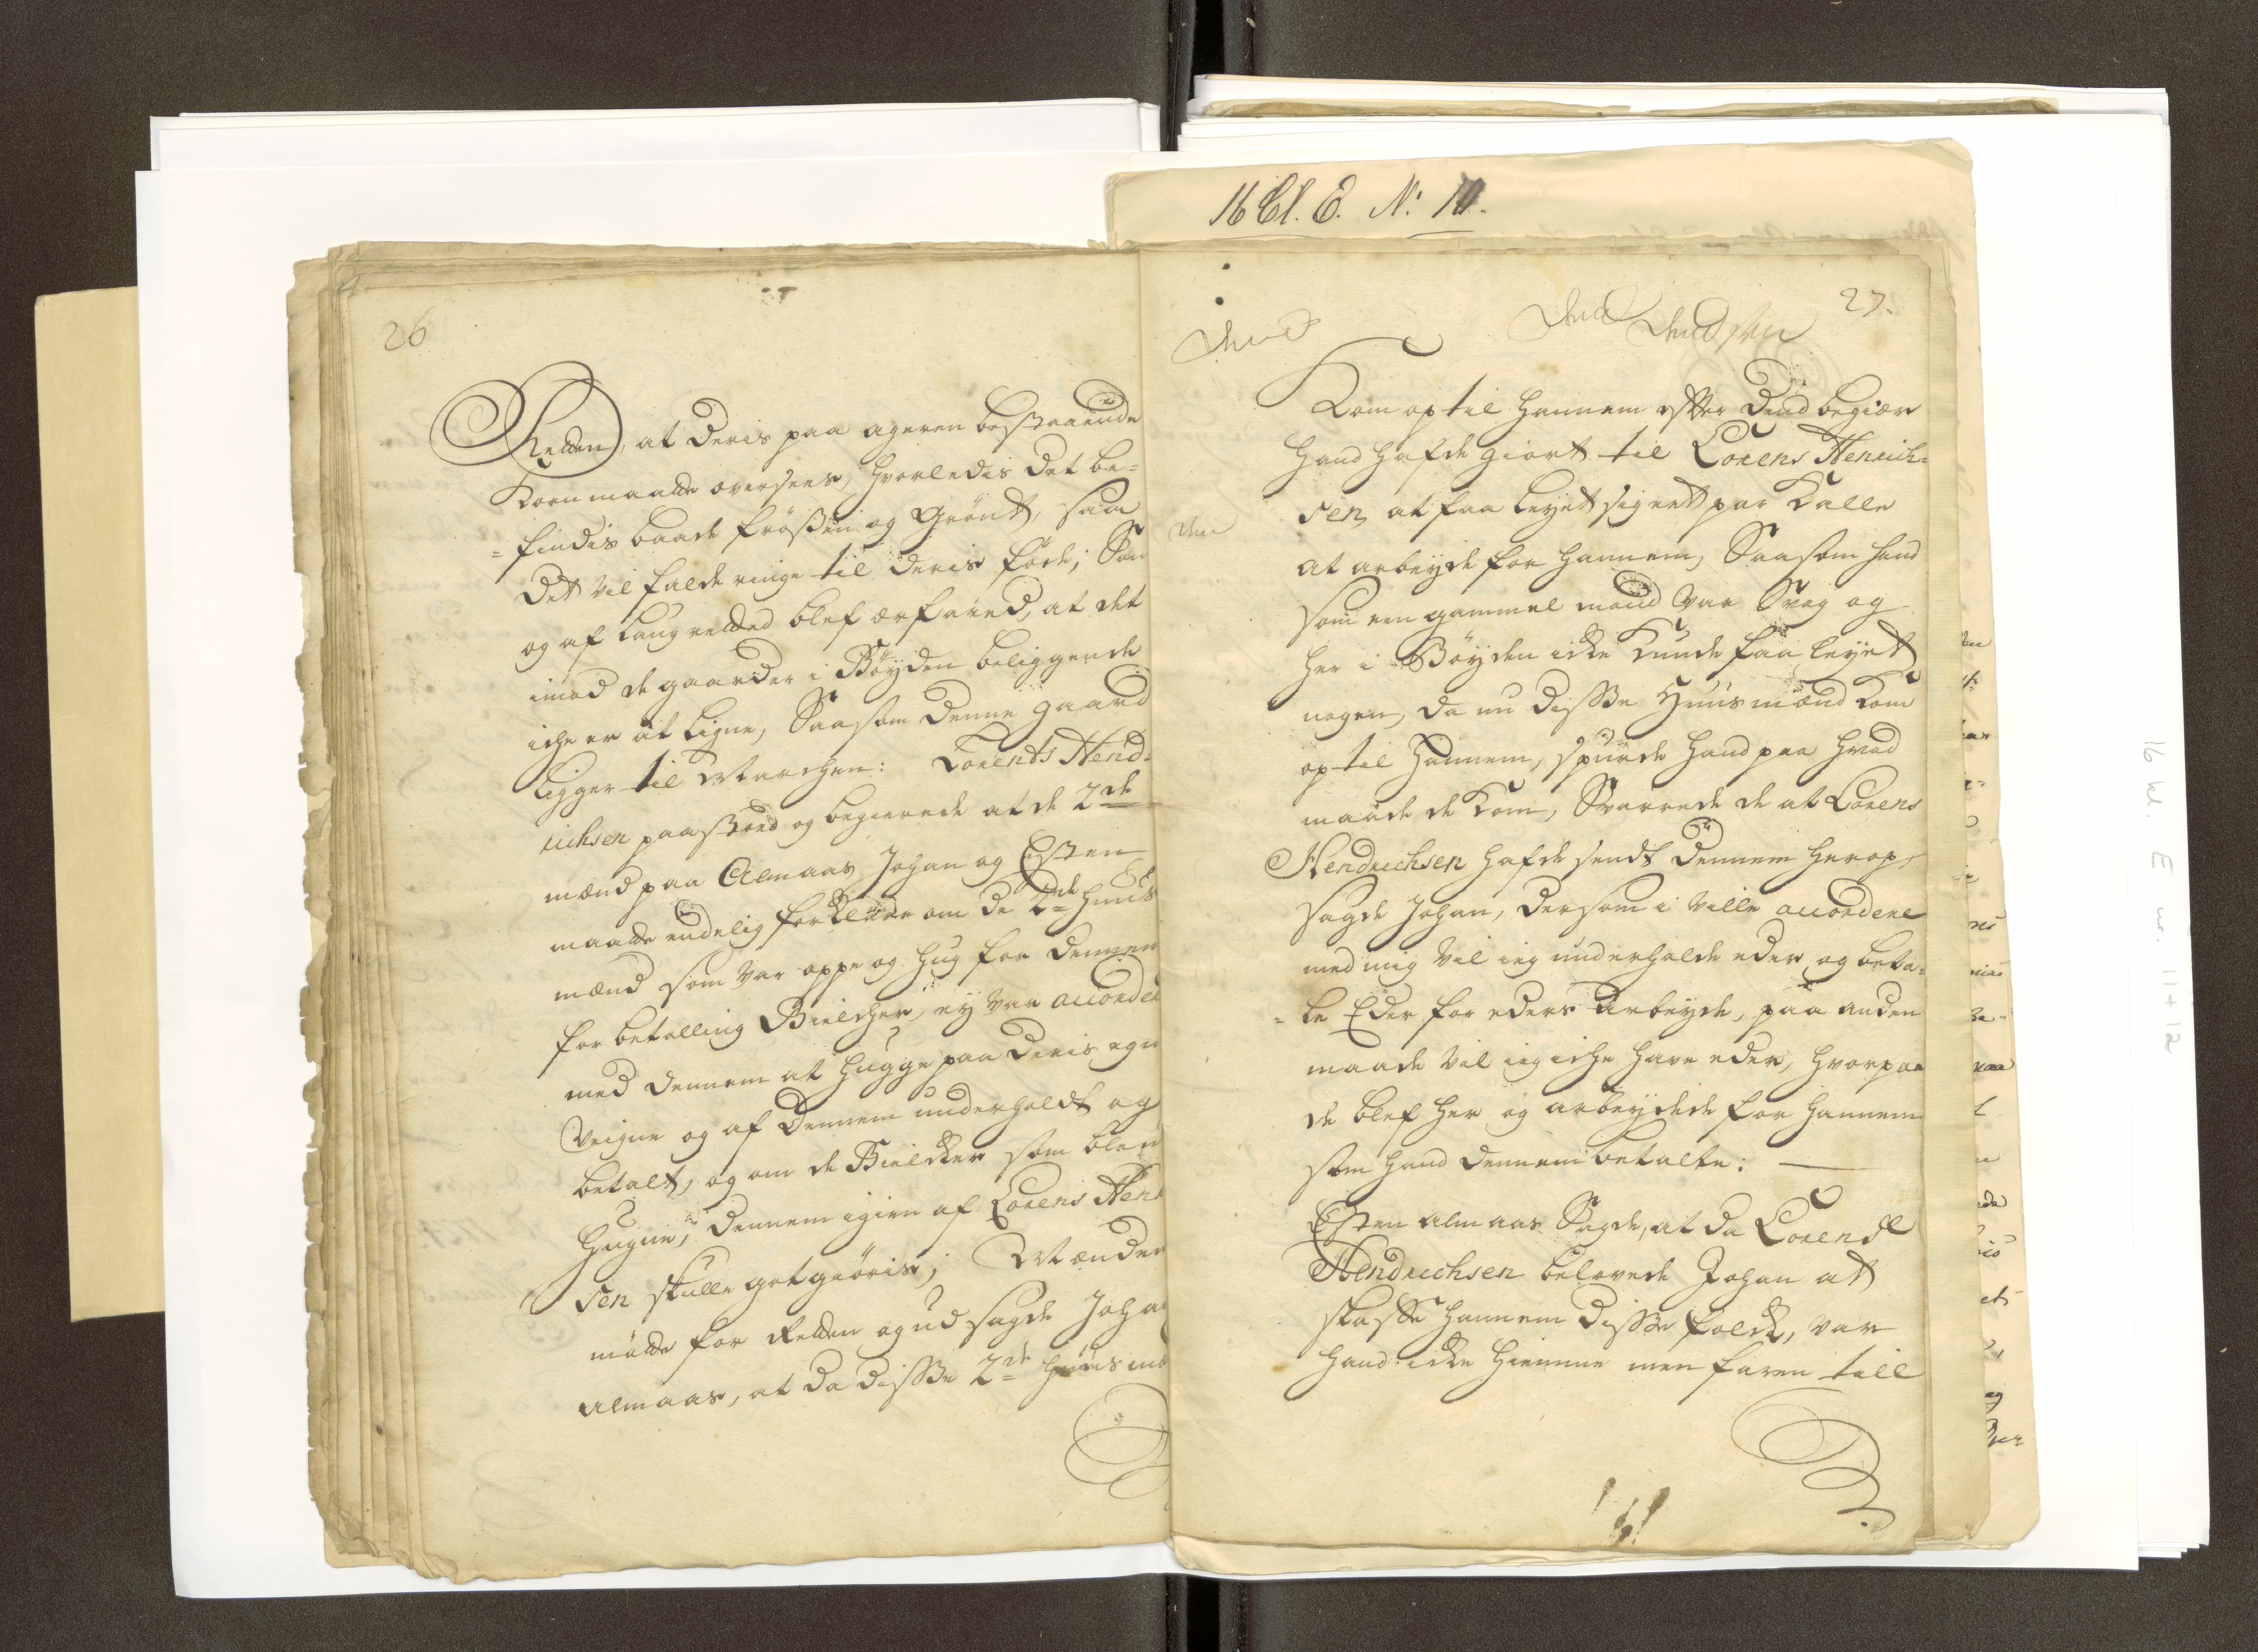 26
Retten, at deris paa ageren bestaaende
Korn maatte oversees, hvorledis det be=
=findis baade frossen og Grönt, saa
det vil falde ringe til deris føde; Saa
og af Laugretted blef erfared, at det
imod de gaarder i Böyden beliggende
iche er at ligne, Saasom denne gaard
ligger til Marchen: Lorents Hend=
richsen paastoed og begierede at de 2de
mænd paa Almaas Johan og Esten
maatte endelig forklare om de 2de Huus
mænd som var oppe og hug for dennem
for betalling Bielcher, ey var accorder
med dennem at hugge paa deris egne
Veigne og af dennem underholdt og
betalt, og om de Bielcker som blen
hugne, dennem igien af Lorens Hen
sen skulle gotgiöris; Mænden
mötte for Retten og ud sagde Joha
Almaas, at da disse 2de huus mæ
16 Cl. E. N: 10.
27.
dend
dend
dend den
den
Kom op til hannem efter dend begiær
hand hafde giort til Lorens Henrich=
sen, at faa leyet sig ett par Kalle
at arbeyde for hannem, Saasom hand
som een gammel mand var Svag og
her i Böyden icke Kunde faa leyet
nogen, da nu disse Huusmænd kom
op til hannem, spurde hand paa hvad
maade de kom, Svarede de at Lorens
Hendrichsen hafde sendt dennem herop,
sagde Johan, dersom i ville accordere
med mig vil ieg underholde eder og beta=
=le Eder for eders arbeyde, paa anden
maade vil ieg iche have eder, hvorpaa
de blef her og arbeydede for hannem
som hand dennem betalte:
Esten Almaas Sagde, at da Lorens
Hendrichsen belovede Johan at
skaffe hannem disse folck, var
hand icke hiemme men faren till
16 kl. E nr. 11+12